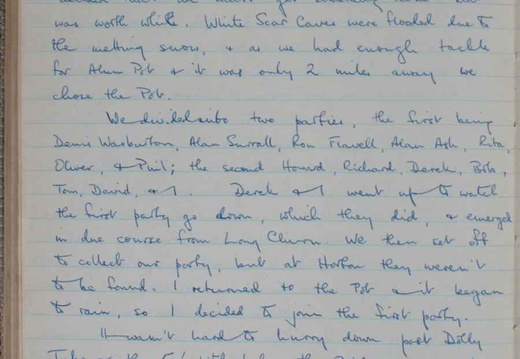 was worth while. White Scar Caves were flooded due to
the melting snow, & as we had enough tackle
for Alum Pot & it was only 2 miles away we
chose the Pot.
We divided into two parties, the first being
Denis Warburton, Alan Surrall, Ron Flavell, Alan Ash, Rita,
Oliver, & Phil; the second Howard, Richard, Derek, Bob,
Tom, David, & I. Derek & I went up to watch
the first party go down, which they did, & emerged
in due course from Long Churn. We then set off
to collect our party, but at Horton they weren't
to be found. I returned to the Pot & it began
to rain, so I decided to join the first party.
It wasn't hard to hurry down past Dolly